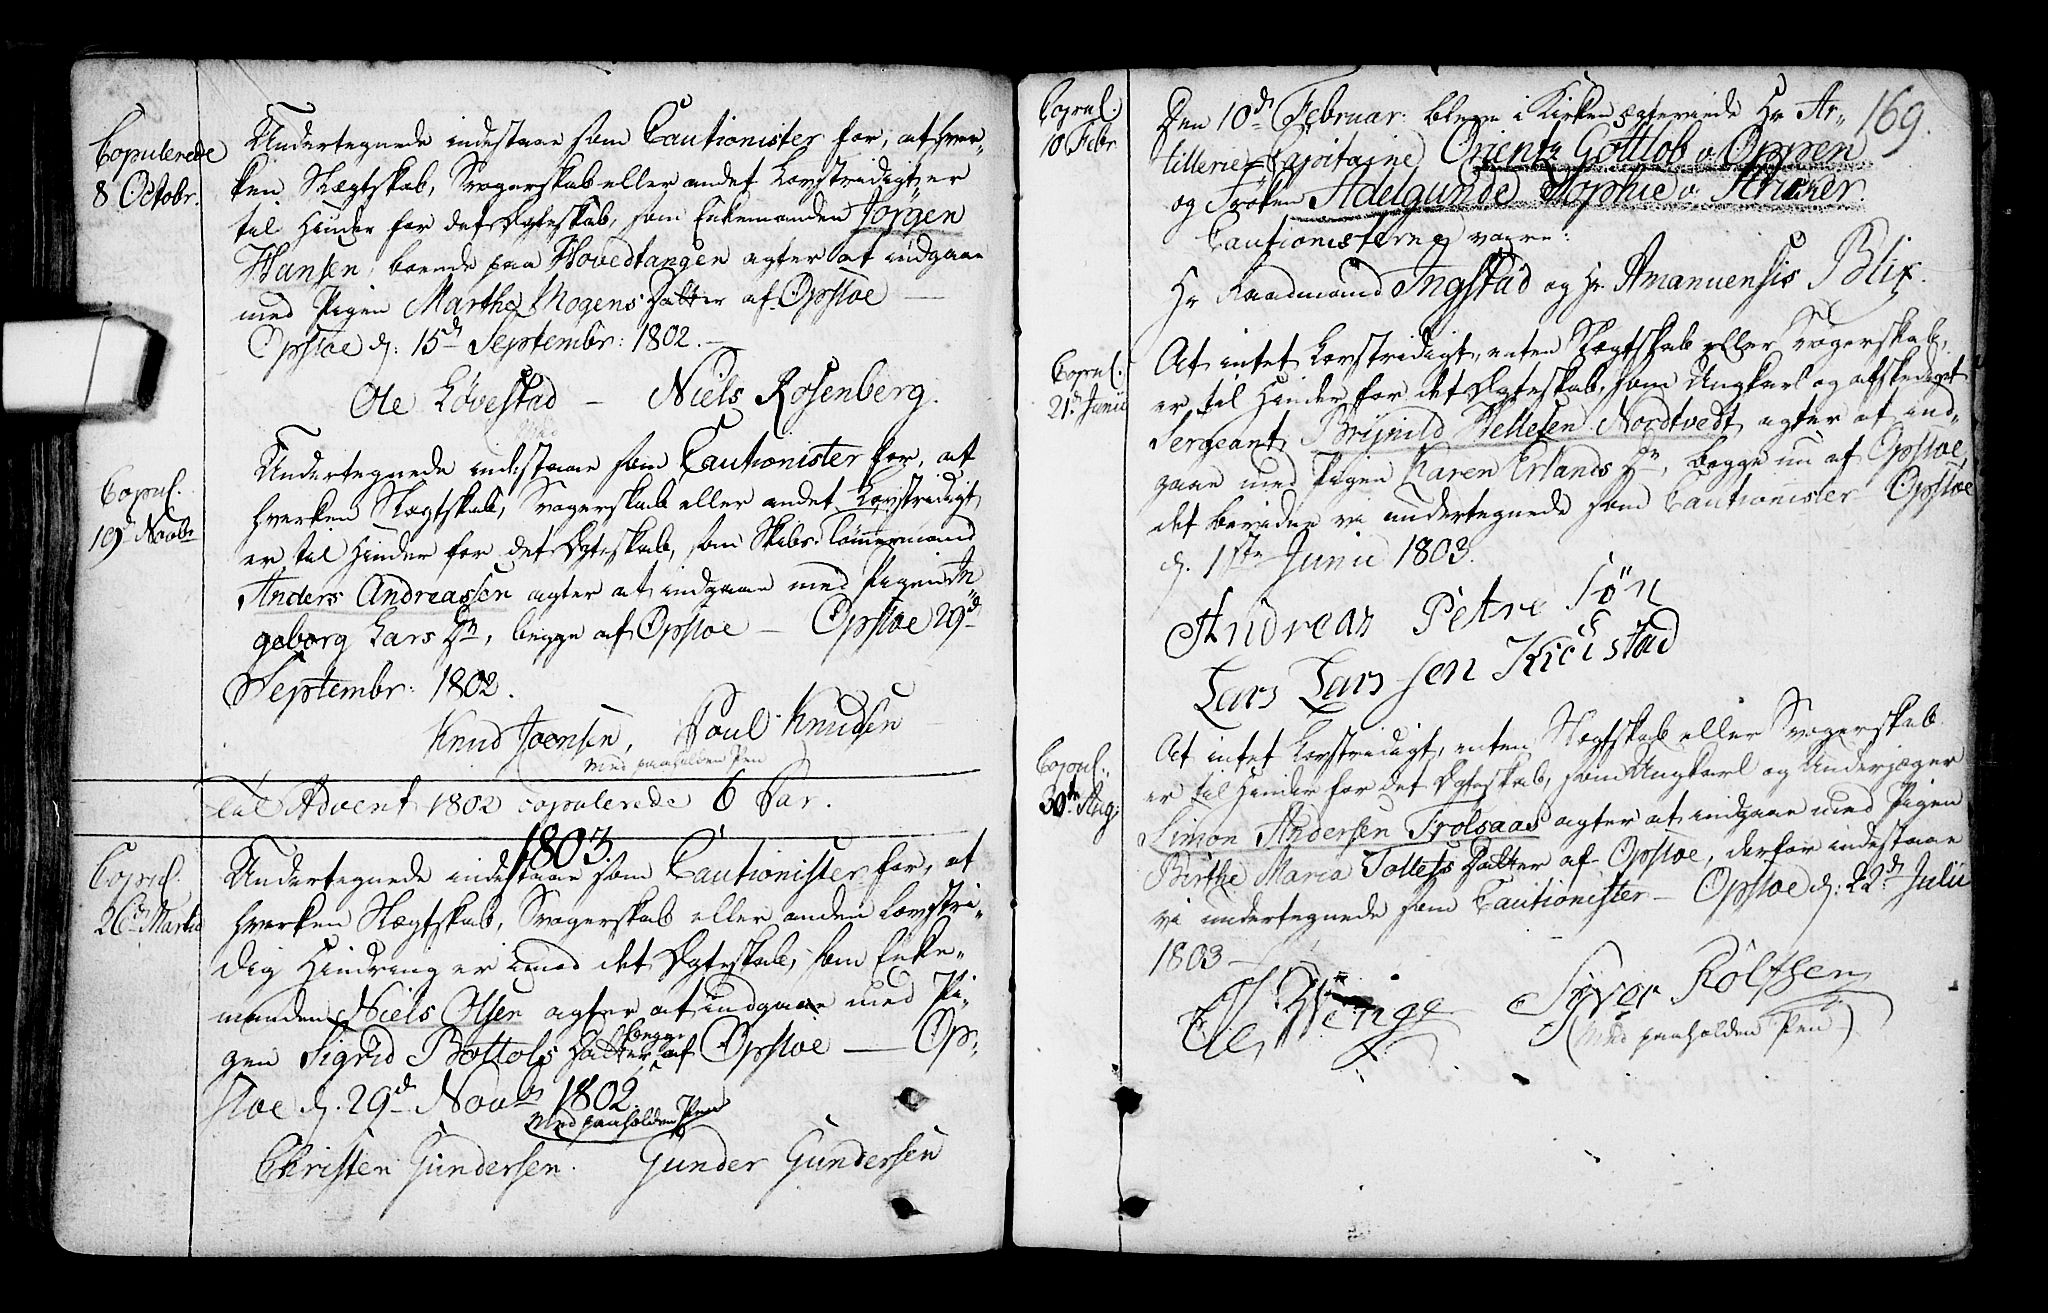 Copulerede
8 Octobr.
Undertegnede indestaae som Cautionister for, at hver-
ken Slægtskab, Svogerskab eller andet Lovstridigt er
til Hinder for det Ægteskab, som Enkemanden Jørgen
Hansen, boende paa Hovedtangen agter at indgaae
med Pigen Marthe Mogens Datter af Opsloe —
Opsloe d: 15d Septembr: 1802. —
Ole Løvestad — Niels Rosenberg.
Copul.
19d Novbr
Undertegnede indestaae som Cautionister for, at
hverken Slægtskab, Svogerskab eller andet Lovstridigt
er til Hinder for det Ægteskab, som Skibs-Tømmermand
Anders Andreassen agter at indgaae med Pigen In-
geborg Lars Dr, begge af Opsloe — Opsloe 29d
Septembr: 1802.
Knud Joensen, Poul Knudsen
Med paaholden Pen
Til Advent 1802 copulerede 6 Par.
1803.
Copul.
26d Martii
Undertegnede indestaae som Cautionister for, at
hverken Slægtskab, Svogerskab eller anden Lovstri-
dig Hindring er imod det Ægteskab, som Enke-
manden Niels Olsen agter at indgaae med Pi-
gen Sigrid Bottols Datter begge af Opsloe — Op-
sloe d. 29d Novbr 1802.
Med paaholden Pen
Christen Gundersen. Gunder Gundersen
169.
Copul.
10 Febr
Den 10d Februar: bleve i Kirken ægteviede Hr Ar-
tillerie-Capitaine Crientz Gottlob v: Oppen
og Frøken Adelgunde Sophie v:
Cautionisterne vare:
Hr Raadmand Ingstad og Hr. Amanuensis Blix.
Copul.
21d Junii
At intet Lovstridigt, enten Slægtskab eller Svogerskab,
er til Hinder for det Ægteskab, som Ungkarl og afskediget
Sergeant Brynild Hellesen Nordtvedt agter at ind-
gaae med Pigen Karen Erlands Dr, begge nu af Opsloe,
det bevidne vi undertegnede som Cautionister — Opsloe
d. 1ste Junii 1803.
Andreas Petre Søn
Lars Larssen Kielstad
Copul.
30te Aug:
At intet Lovstridigt, enten Slægtskab eller Svogerskab
er til Hinder for det Ægteskab, som Ungkarl og Underjæger
Simon Andersen Trolsaas agter at indgaae med Pigen
Birthe Maria Tollefs Datter af Opsloe, derfor indestaae
vi undertegnede som Cautionister — Opsloe d: 22d Julii
1803 —
Ole Wenge Syver Rolfsen
(Med paaholden Pen)